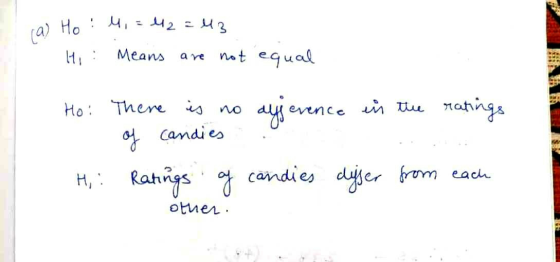 (a) H₀ : μ₁ = μ₂ = μ₃
H₁ : Means are not equal
H₀ : There is no difference in the ratings
of candies
H₁ : Ratings of candies differ from each
other.